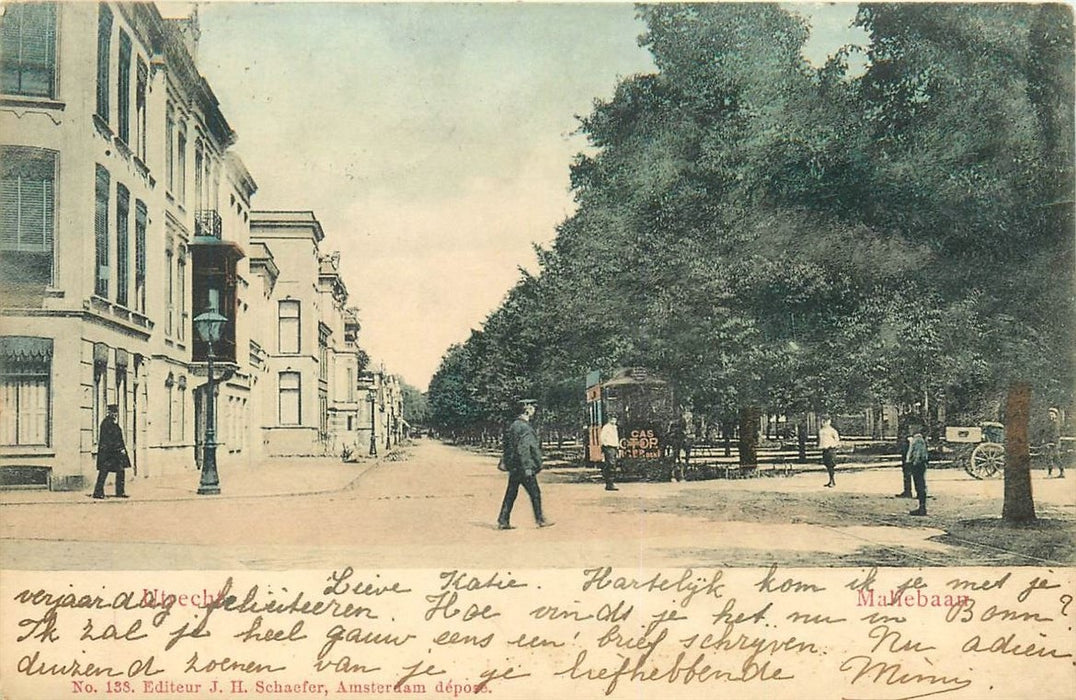 GAS
MOTOR
Utrecht.
Maliebaan.
Lieve Katie. Hartelijk kom ik je met je
verjaardag feliciteeren. Hoe vindt je het nu in Bonn?
Ik zal je heel gauw eens een brief schrijven. Nu adieu
duizend zoenen van je je liefhebbende Mimi.
No. 138. Editeur J. H. Schaefer, Amsterdam déposé.